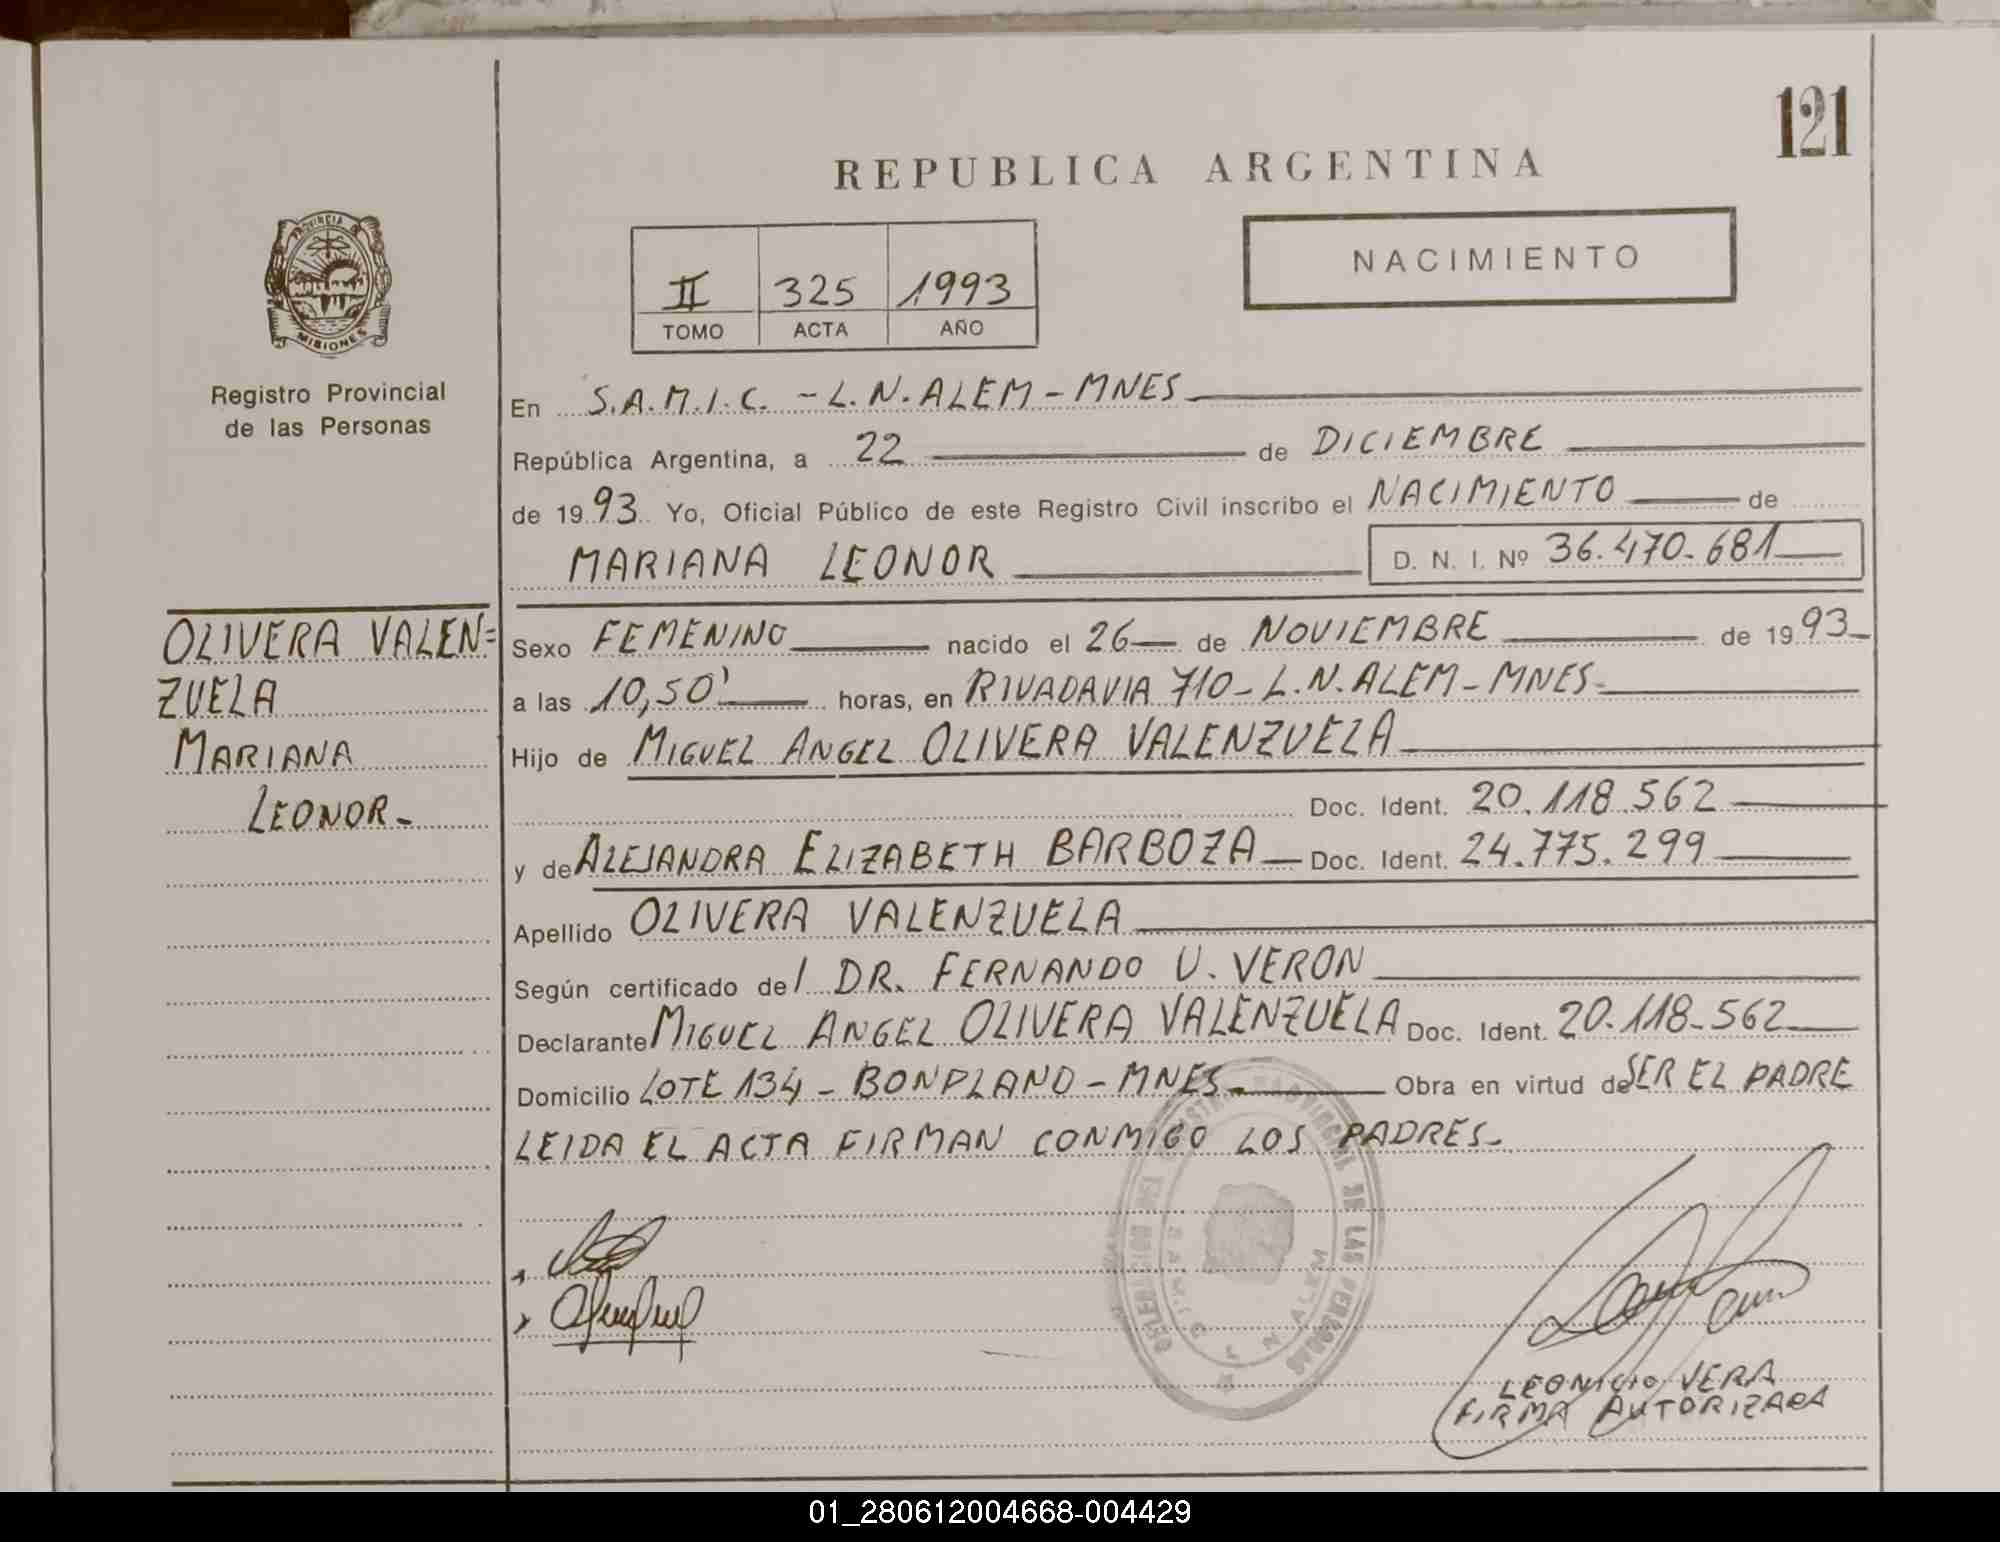 121
REPUBLICA ARGENTINA
NACIMIENTO
II 325 1993
TOMO ACTA AÑO
PROVINCIA DE
MISIONES
Registro Provincial
de las Personas
OLIVERA VALEN=
ZUELA
MARIANA
LEONOR-
En S.A.M.I.C. - L.N. ALEM - MNES
República Argentina, a 22 de DICIEMBRE
de 1993 Yo, Oficial Público de este Registro Civil inscribo el NACIMIENTO de
MARIANA LEONOR D. N. I. Nº 36.470.681
Sexo FEMENINO nacido el 26 de NOVIEMBRE de 1993
a las 10,50' horas, en RIVADAVIA 710 - L.N. ALEM - MNES-
Hijo de MIGUEL ANGEL OLIVERA VALENZUELA
Doc. Ident. 20.118.562
y de ALEJANDRA ELIZABETH BARBOZA Doc. Ident. 24.775.299
Apellido OLIVERA VALENZUELA
Según certificado de l DR. FERNANDO U. VERON
Declarante MIGUEL ANGEL OLIVERA VALENZUELA Doc. Ident. 20.118.562
Domicilio LOTE 134 - BONPLAND - MNES- Obra en virtud de SER EL PADRE
LEIDA EL ACTA FIRMAN CONMIGO LOS PADRES-
PROVINCIAL DE LAS PERSONAS
LEONICIO VERA
FIRMA AUTORIZADA
01_280612004668-004429